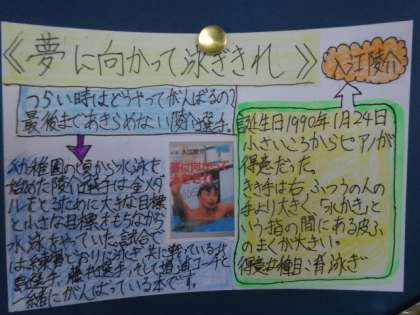 《夢に向かって泳ぎきれ》
入江陵介
つらい時はどうやってがんばるの?
最後まであきらめない陵介選手。
幼稚園の頃から水泳を
始めた陵介選手は金メダ
ルをとるために大きな目標
と小さな目標をもちながら
水泳をやっていた。試合で
は練習どおりに泳ぎ、共に戦っている北
島選手、藤井選手、そして道浦コーチと
一緒にがんばっている本です。
夢に向かって
誕生日1990年1月24日
小さいころからピアノが
得意だった。
きき手は右。ふつうの人の
手より大きく「水かき」と
いう指の間にある皮ふ
のまくが大きい。
得意な種目:背泳ぎ